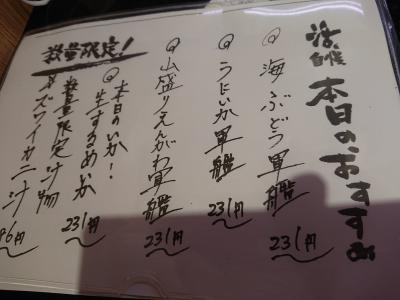 本日のおすすめ
@ 海ぶどう軍艦 231円
@ うにいか軍艦 231円
@ 山盛りえんがわ軍艦 231円
数量限定!
@ 本日のいか!
生するめいか 231円
数量限定汁物
ズワイガニ汁